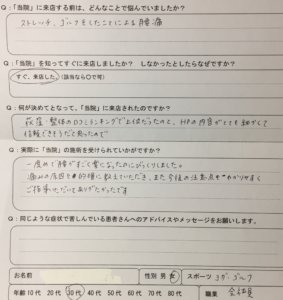 Q:「当院」に来店する前は、どんなことで悩んでいましたか？
ストレッチ、ゴルフをしたことによる腰痛
Q:「当院」を知ってすぐに来店しましたか？ しなかったとしたらなぜですか？
すぐ、来店した。（該当なら○で可）
Q:何が決めてとなって、「当院」に来店されたのですか？
荻窪 整体の口コミランキングで上位だったのと、HPの内容がとても細かくて
信頼できそうだと思ったので
Q:実際に「当院」の施術を受けられていかがですか？
一度で腰がすごく楽になったのにびっくりしました。
痛みの原因を的確に教えていただき、また今後の注意点もわかりやすく
ご指導いただいてありがたかったです
Q:同じような症状で苦しんでいる患者さんへのアドバイスやメッセージをお願いします。
お名前
性別 男 女
スポーツ ヨガ ゴルフ
年齢 10代 20代 30代 40代 50代 60代 70代 80代
職業 会社員